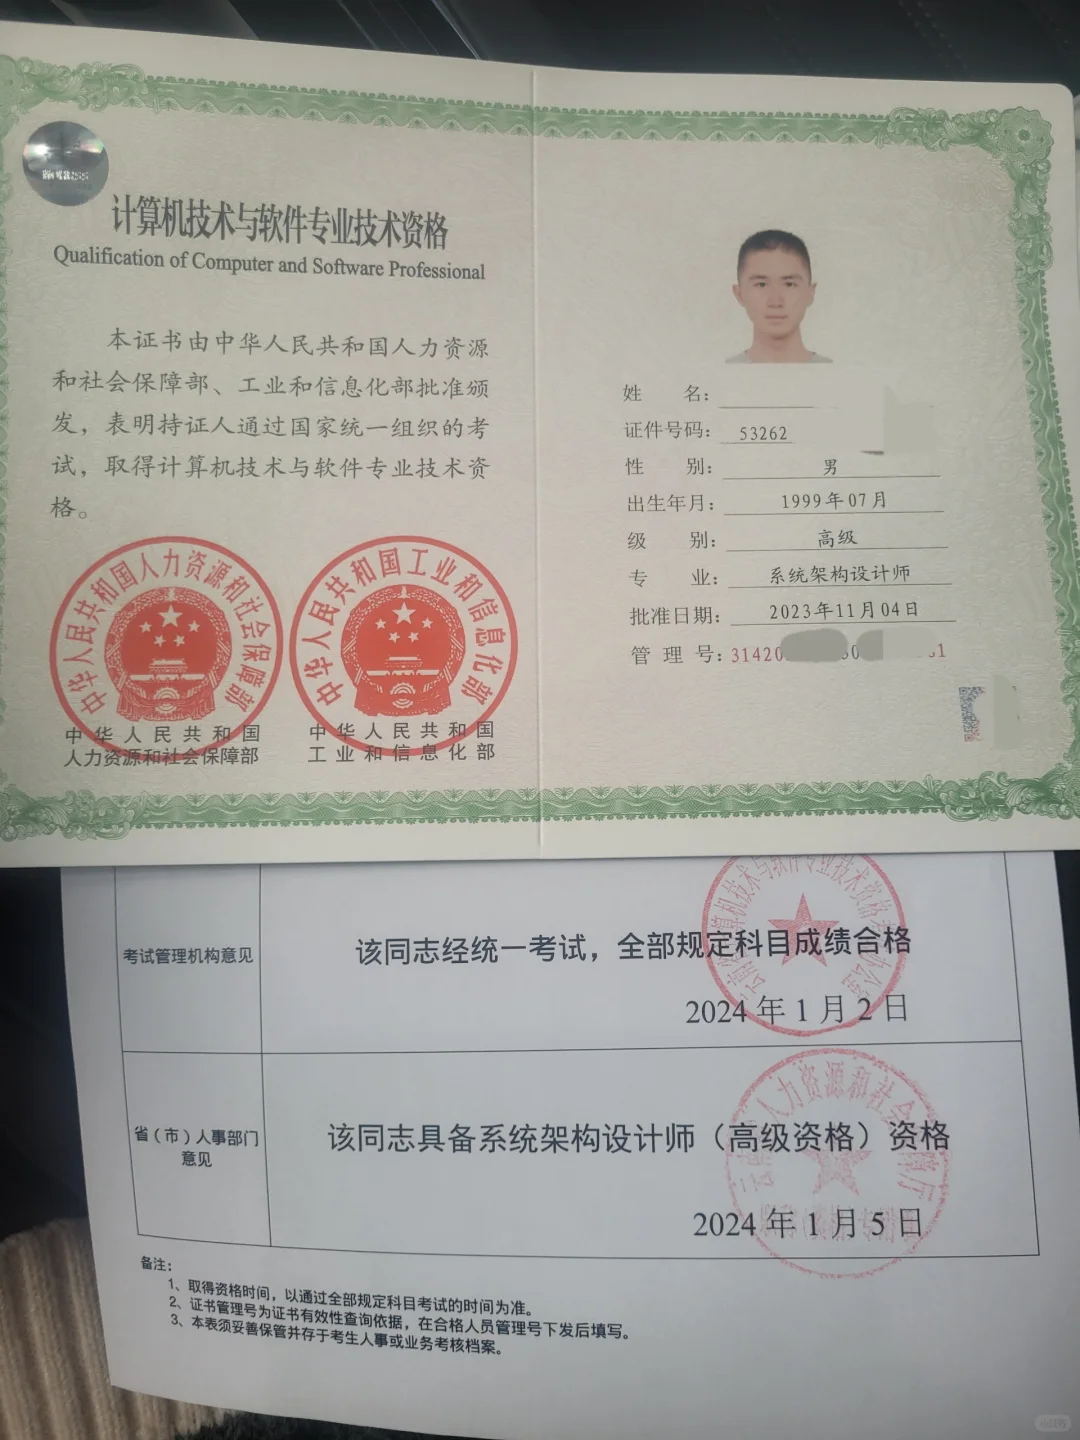 计算机技术与软件专业技术资格
Qualification of Computer and Software Professional
本证书由中华人民共和国人力资源
和社会保障部、工业和信息化部批准颁
发，表明持证人通过国家统一组织的考
试，取得计算机技术与软件专业技术资
格。
中华人民共和国人力资源和社会保障部
中华人民共和国
人力资源和社会保障部
中华人民共和国工业和信息化部
中华人民共和国
工业和信息化部
姓 名：
证件号码： 53262
性 别： 男
出生年月： 1999年07月
级 别： 高级
专 业： 系统架构设计师
批准日期： 2023年11月04日
管 理 号： 31420
考试管理机构意见
该同志经统一考试，全部规定科目成绩合格
2024 年 1 月 2 日
省（市）人事部门
意见
该同志具备系统架构设计师（高级资格）资格
2024 年 1 月 5 日
备注：
1、取得资格时间，以通过全部规定科目考试的时间为准。
2、证书管理号为证书有效性查询依据，在合格人员管理号下发后填写。
3、本表须妥善保管并存于考生人事或业务考核档案。